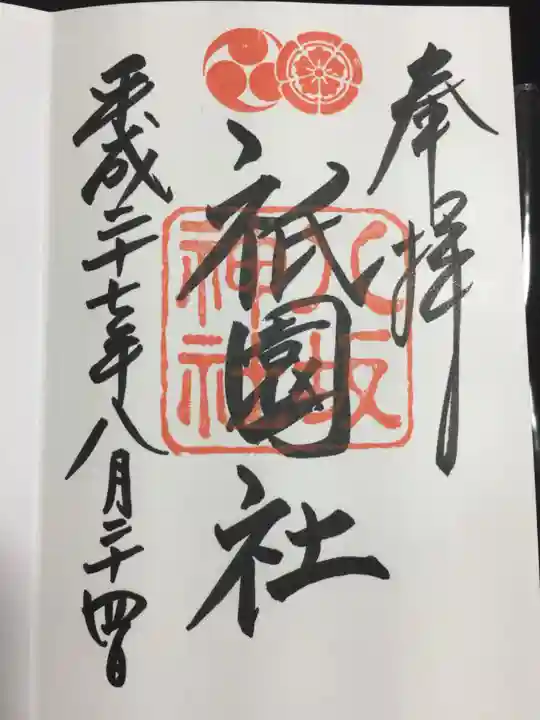 奉拝
八坂
神社
祇園社
平成二十七年八月二十四日